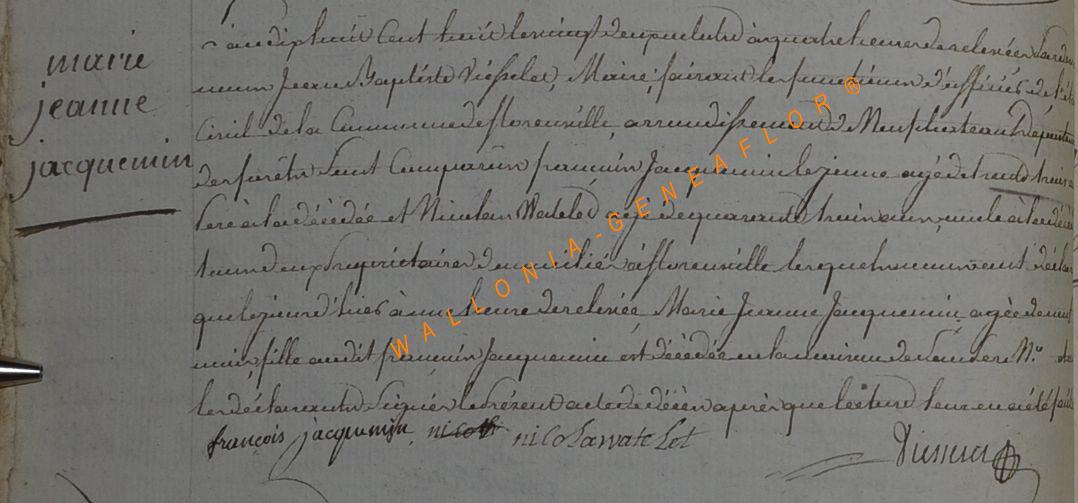 marie
jeanne
jacquemin
an dix huit cent huit le vingt deux juillet à quatre heures de relevée par devant
nous Jean Baptiste Viesselet, Maire, faisant les fonctions d'officier de l'état
Civil de la Commune de florenville, arrondissement de Neufchateau Département
des forêts sont Comparu françois Jacquemin le jeune agé de trente trois ans
Pere à la décédée et Nicolas Watelet agé de quarante trois ans, oncle à la décédée
tous deux Proprietaires domiciliés à florenville lesquels nous ont déclaré
que le jour d'hier à une heure de relevée, Marie Jeanne Jacquemin, agée de
mois, fille audit françois Jacquemin est décédée en la maison de son Pere N.º et
les déclarants Signés le Présent acte de décès après que lecture leur en a été faite
françois jacquemin nicolas watelet
WALLONIA-GENEAFLOR ®